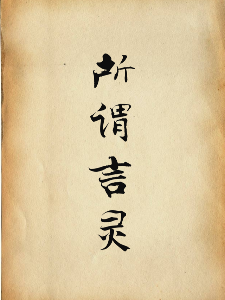 所谓言灵